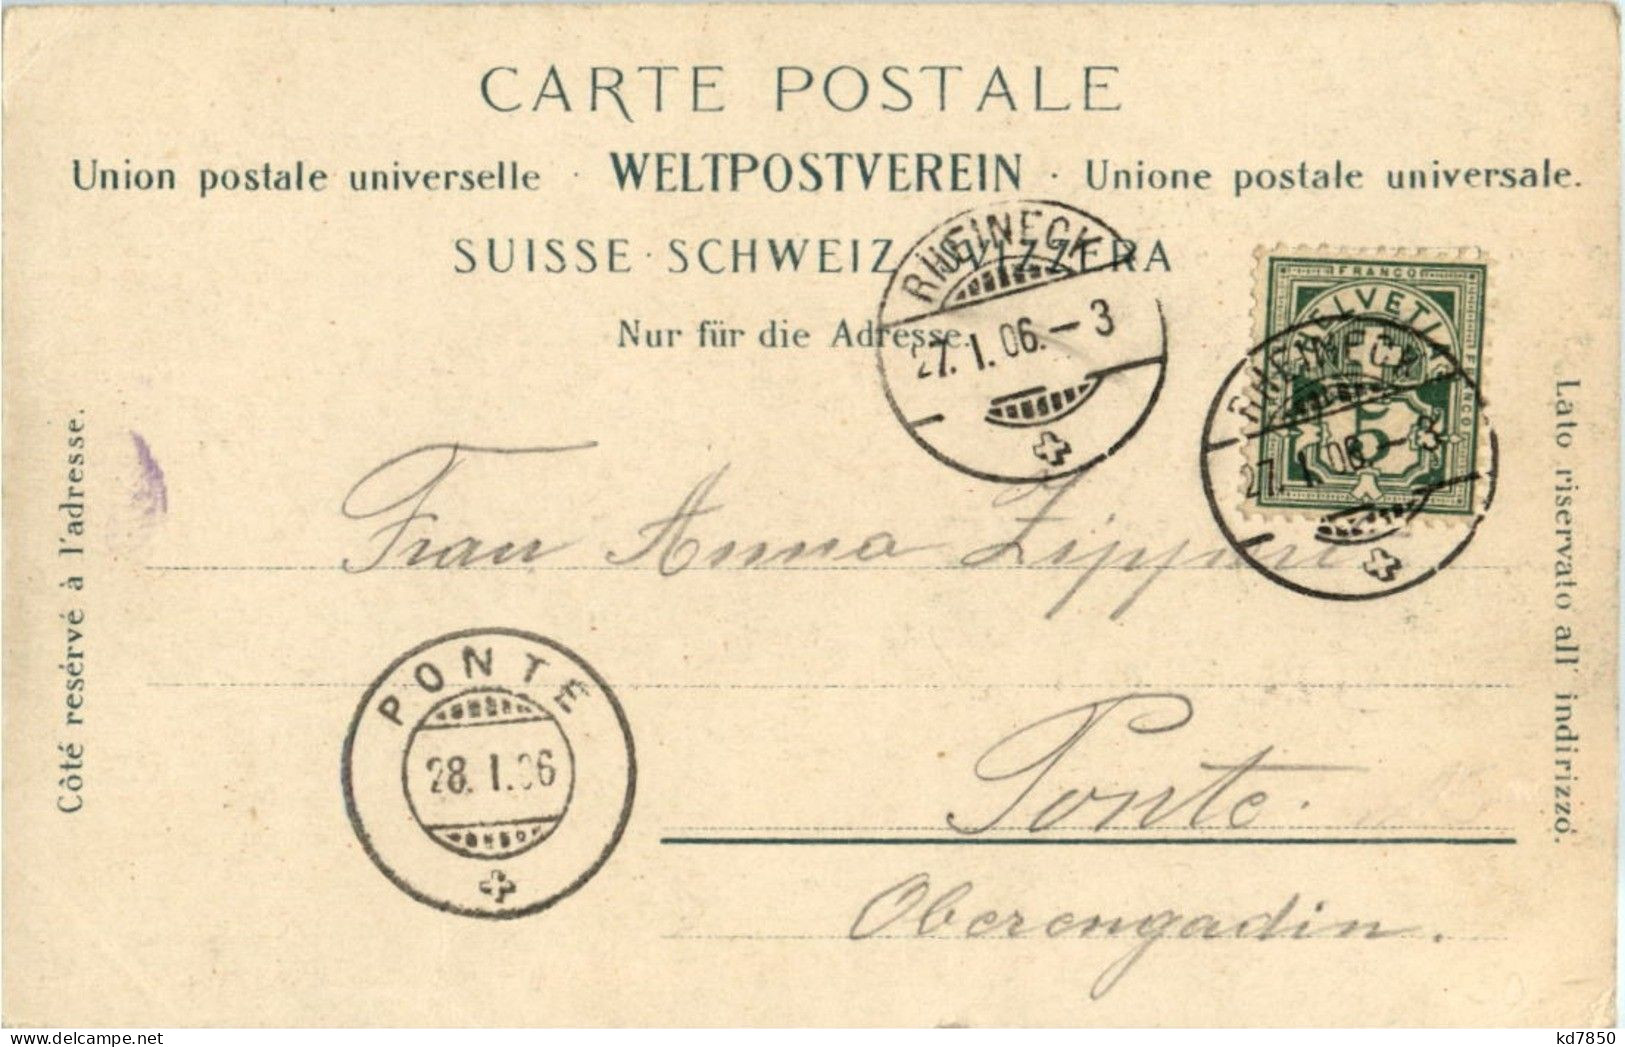 CARTE POSTALE
Union postale universelle · WELTPOSTVEREIN · Unione postale universale.
SUISSE · SCHWEIZ · SVIZZERA
Nur für die Adresse.
RHEINECK
27. I. 06. – 3
FRANCO
HELVETIA
FRANCO
5
RHEINECK
27. I. 06. – 3
Côté resérvé à l'adresse.
Lato riservato all' indirizzo.
Frau Anna
PONTE
28. I. 06
Ponte.
Oberengadin.
delcampe.net
kd7850